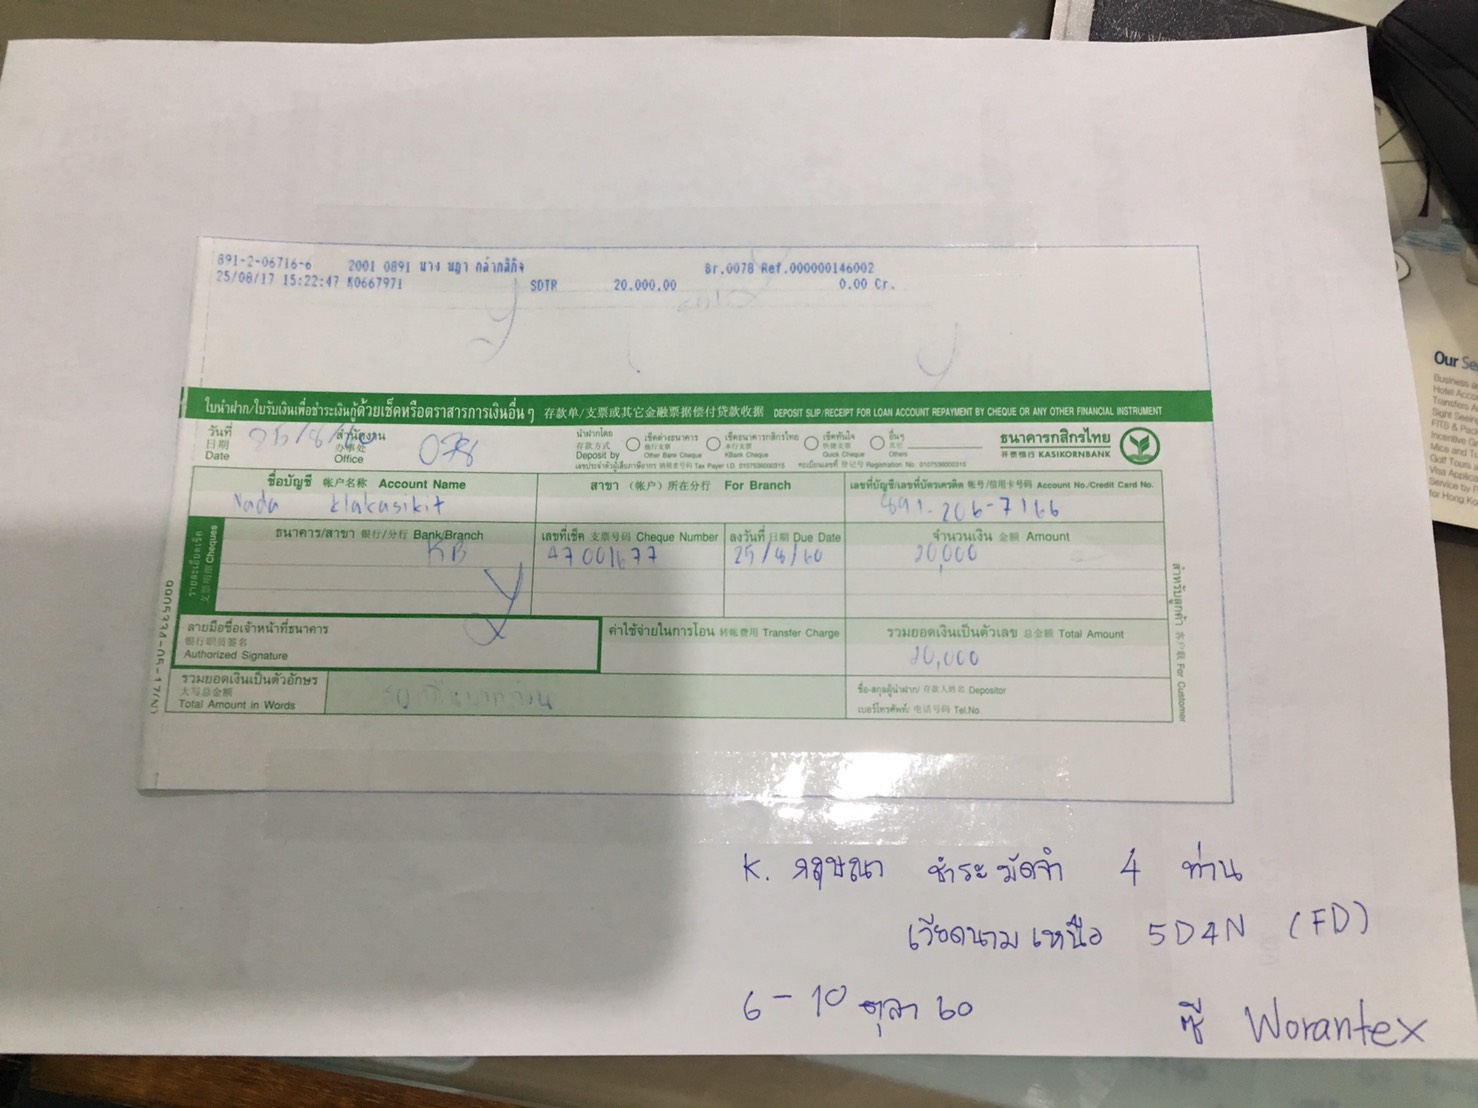 891-2-06716-6 2001 0891 นาง นฎา กล้ากสิกิจ Br.0078 Ref.000000146002
25/08/17 15:22:47 K0667971 SDTR 20,000.00 0.00 Cr.
ใบนำฝาก/ใบรับเงินเพื่อชำระเงินกู้ด้วยเช็คหรือตราสารการเงินอื่น ๆ 存款单/支票或其它金融票据偿付贷款收据 DEPOSIT SLIP/RECEIPT FOR LOAN ACCOUNT REPAYMENT BY CHEQUE OR ANY OTHER FINANCIAL INSTRUMENT
วันที่ 日期 Date 25/8/60
สำนักงาน 办事处 Office 078
นำฝากโดย 存款方式 Deposit by
เช็คต่างธนาคาร 他行支票 Other Bank Cheque
เช็คธนาคารกสิกรไทย 本行支票 KBank Cheque
เช็คทันใจ 快捷支票 Quick Cheque
อื่นๆ 其它 Others
เลขประจำตัวผู้เสียภาษีอากร 纳税者号码 Tax Payer I.D. 0107536000315 ทะเบียนเลขที่ 登记号 Registration No. 0107536000315
ธนาคารกสิกรไทย
开泰银行 KASIKORNBANK
ชื่อบัญชี 帐户名称 Account Name
Nada klakasikit
สาขา (帐户) 所在分行 For Branch
เลขที่บัญชี/เลขที่บัตรเครดิต 帐号/信用卡号码 Account No./Credit Card No.
891-206-7166
รายละเอียดเช็ค 支票明细 Cheques
ธนาคาร/สาขา 银行/分行 Bank/Branch
KB
เลขที่เช็ค 支票号码 Cheque Number
47001677
ลงวันที่ 日期 Due Date
25/8/60
จำนวนเงิน 金额 Amount
20,000
ลายมือชื่อเจ้าหน้าที่ธนาคาร
银行职员签名
Authorized Signature
ค่าใช้จ่ายในการโอน 转帐费用 Transfer Charge
รวมยอดเงินเป็นตัวเลข 总金额 Total Amount
20,000
รวมยอดเงินเป็นตัวอักษร
大写总金额
Total Amount in Words
ชื่อ-สกุลผู้นำฝาก/ 存款人姓名 Depositor
เบอร์โทรศัพท์/ 电话号码 Tel.No.
สำหรับลูกค้า 客户联 For Customer
K. กฤษณา ชำระมัดจำ 4 ท่าน
เวียดนามเหนือ 5D4N (FD)
6-10 ตุลา 60 ซี Worantex
Our